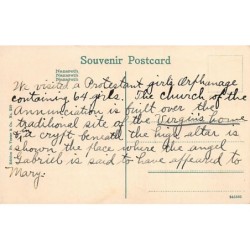 Souvenir Postcard
We visited a Protestant girls Orphanage
containing 64 girls. The church of the
Annunciation is built over the
traditional site of the Virgins home
& a crypt beneath the high altar is
shown the place where the angel
Gabriel is said to have appeared to
Mary.